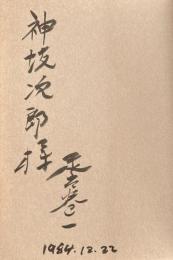 神坂次郎様
一
1984.12.22